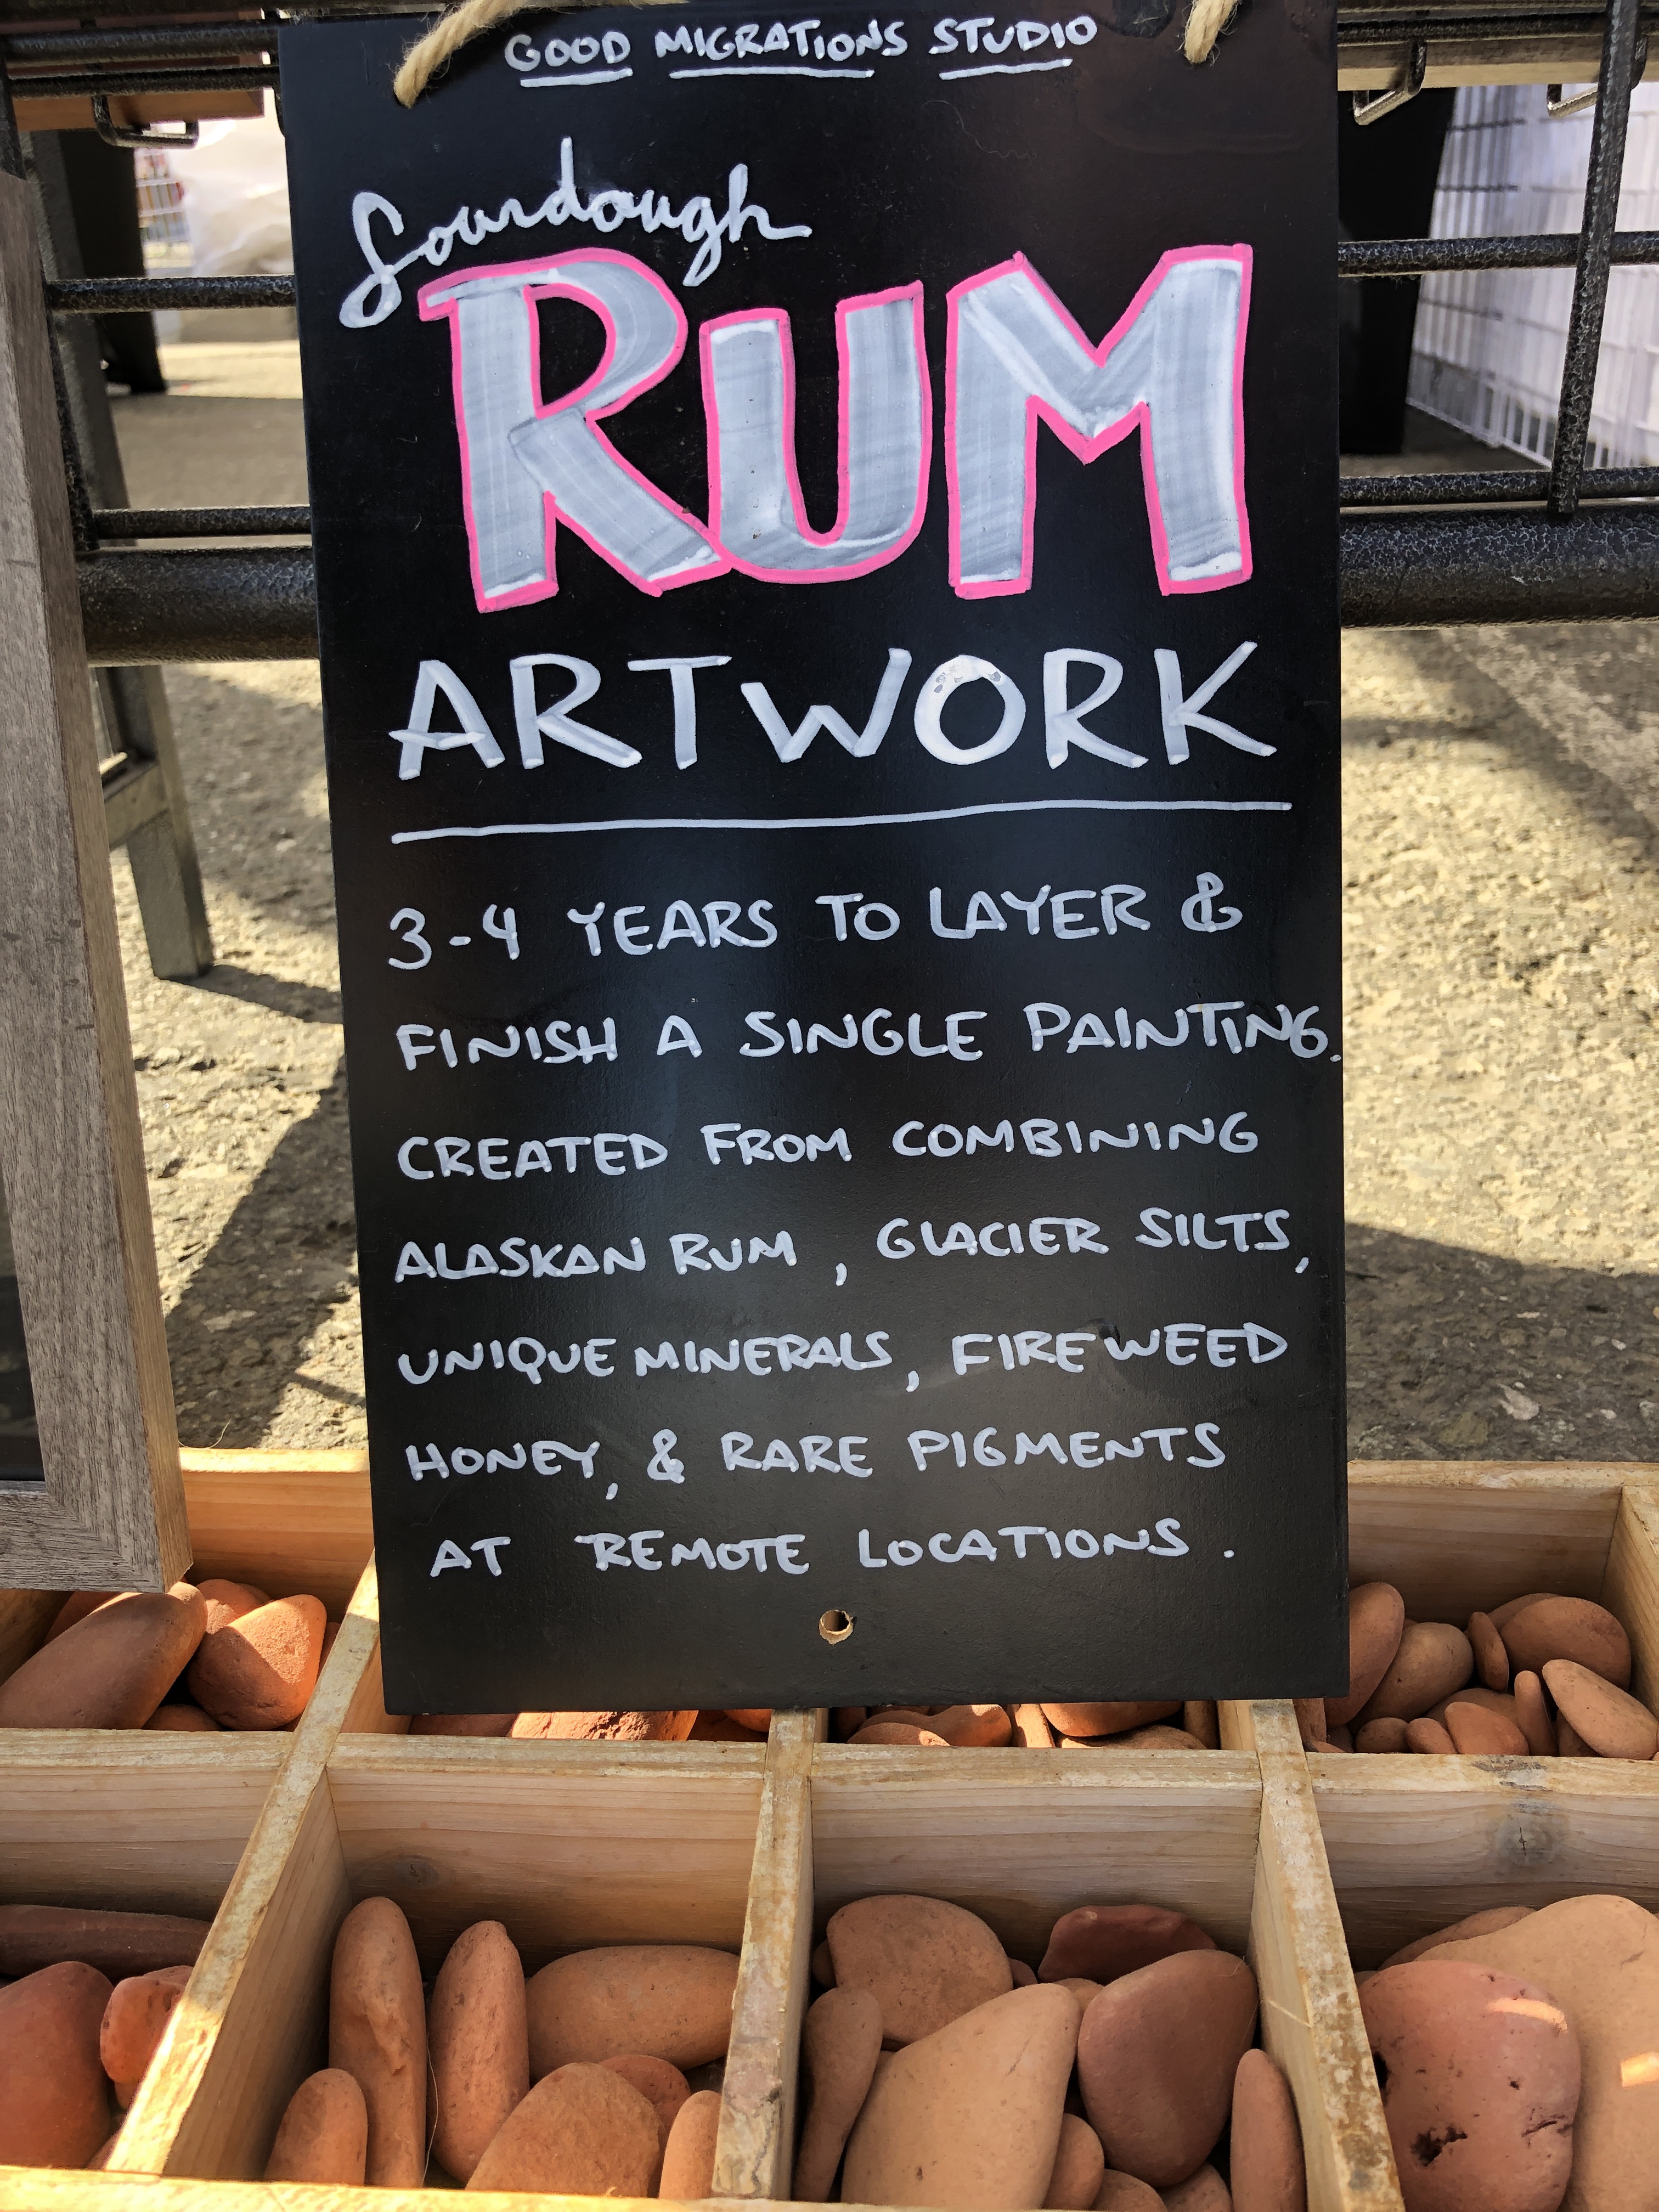 GOOD MIGRATIONS STUDIO
Sourdough
RUM
ARTWORK
3-4 YEARS TO LAYER &
FINISH A SINGLE PAINTING.
CREATED FROM COMBINING
ALASKAN RUM, GLACIER SILTS,
UNIQUE MINERALS, FIREWEED
HONEY, & RARE PIGMENTS
AT REMOTE LOCATIONS.